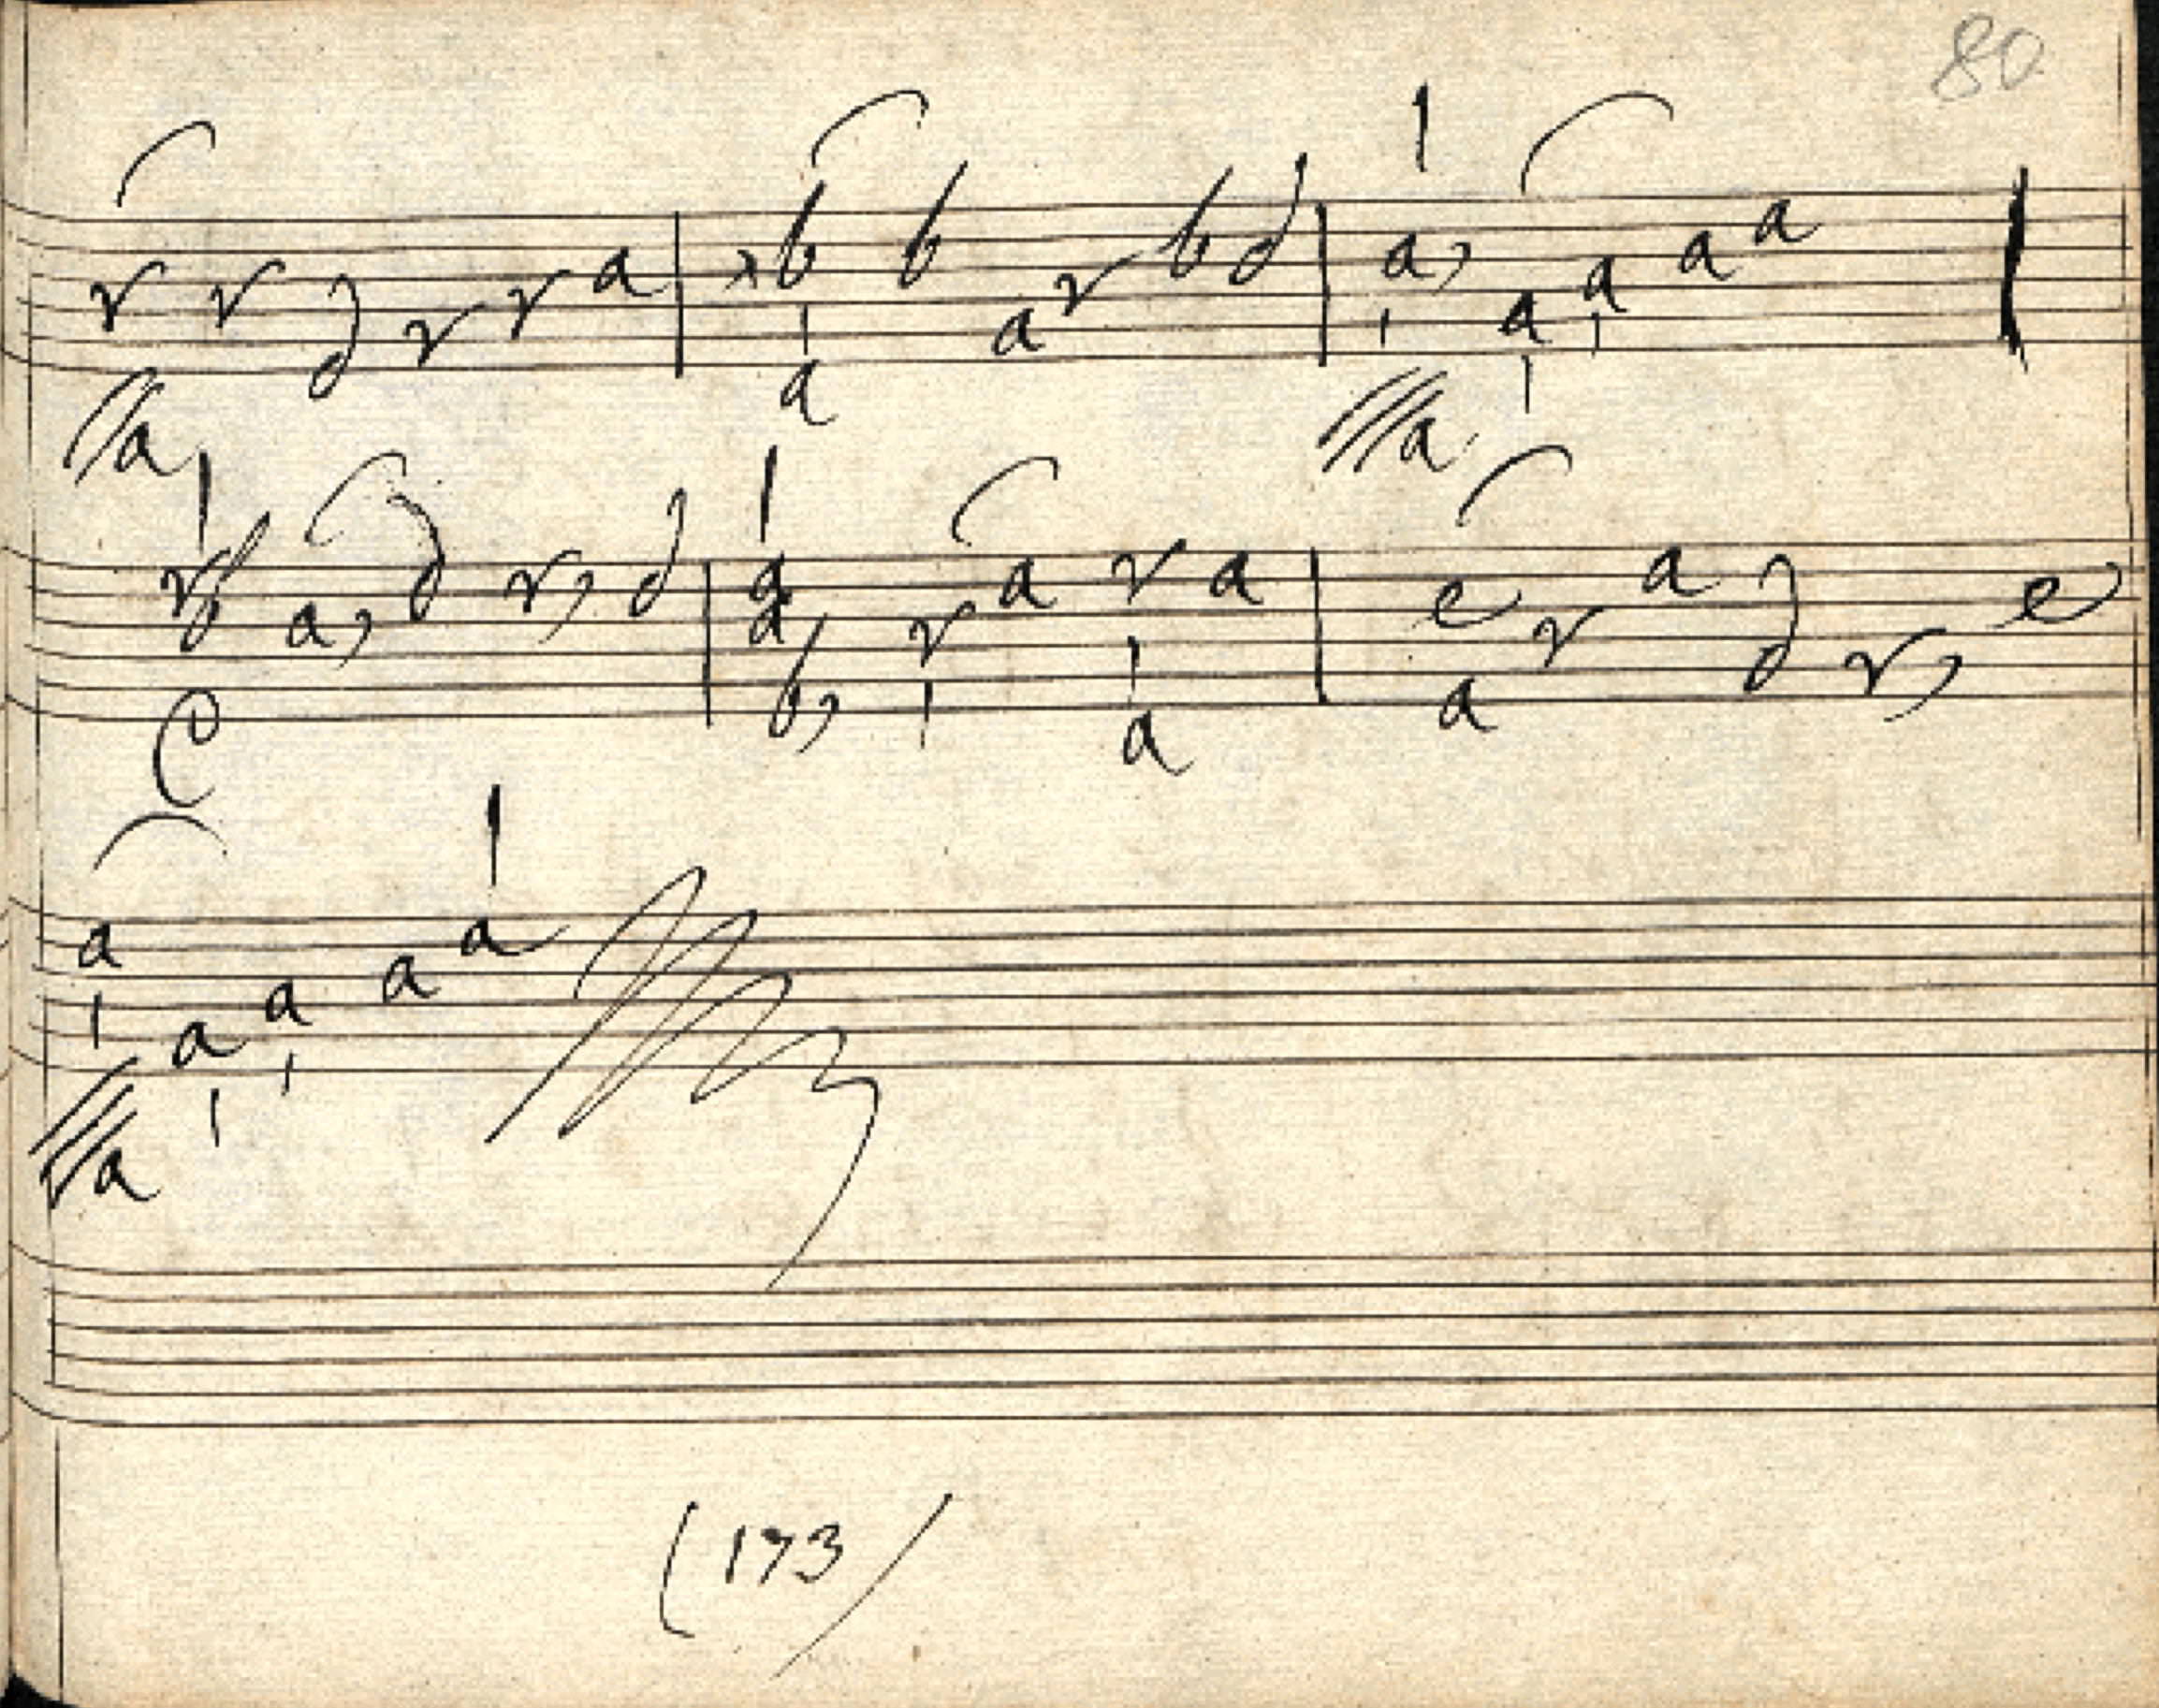 80
r r d r r a | x b b a r b d | a, a a a a
//a a ///a
r b a, d r, d | a a b, r a r a | e r a d r, e
C a a
a a a a a
///a
(173)